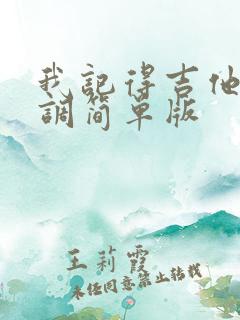 我記得吉他
調簡單版
王莉霞
未经同意禁止转载